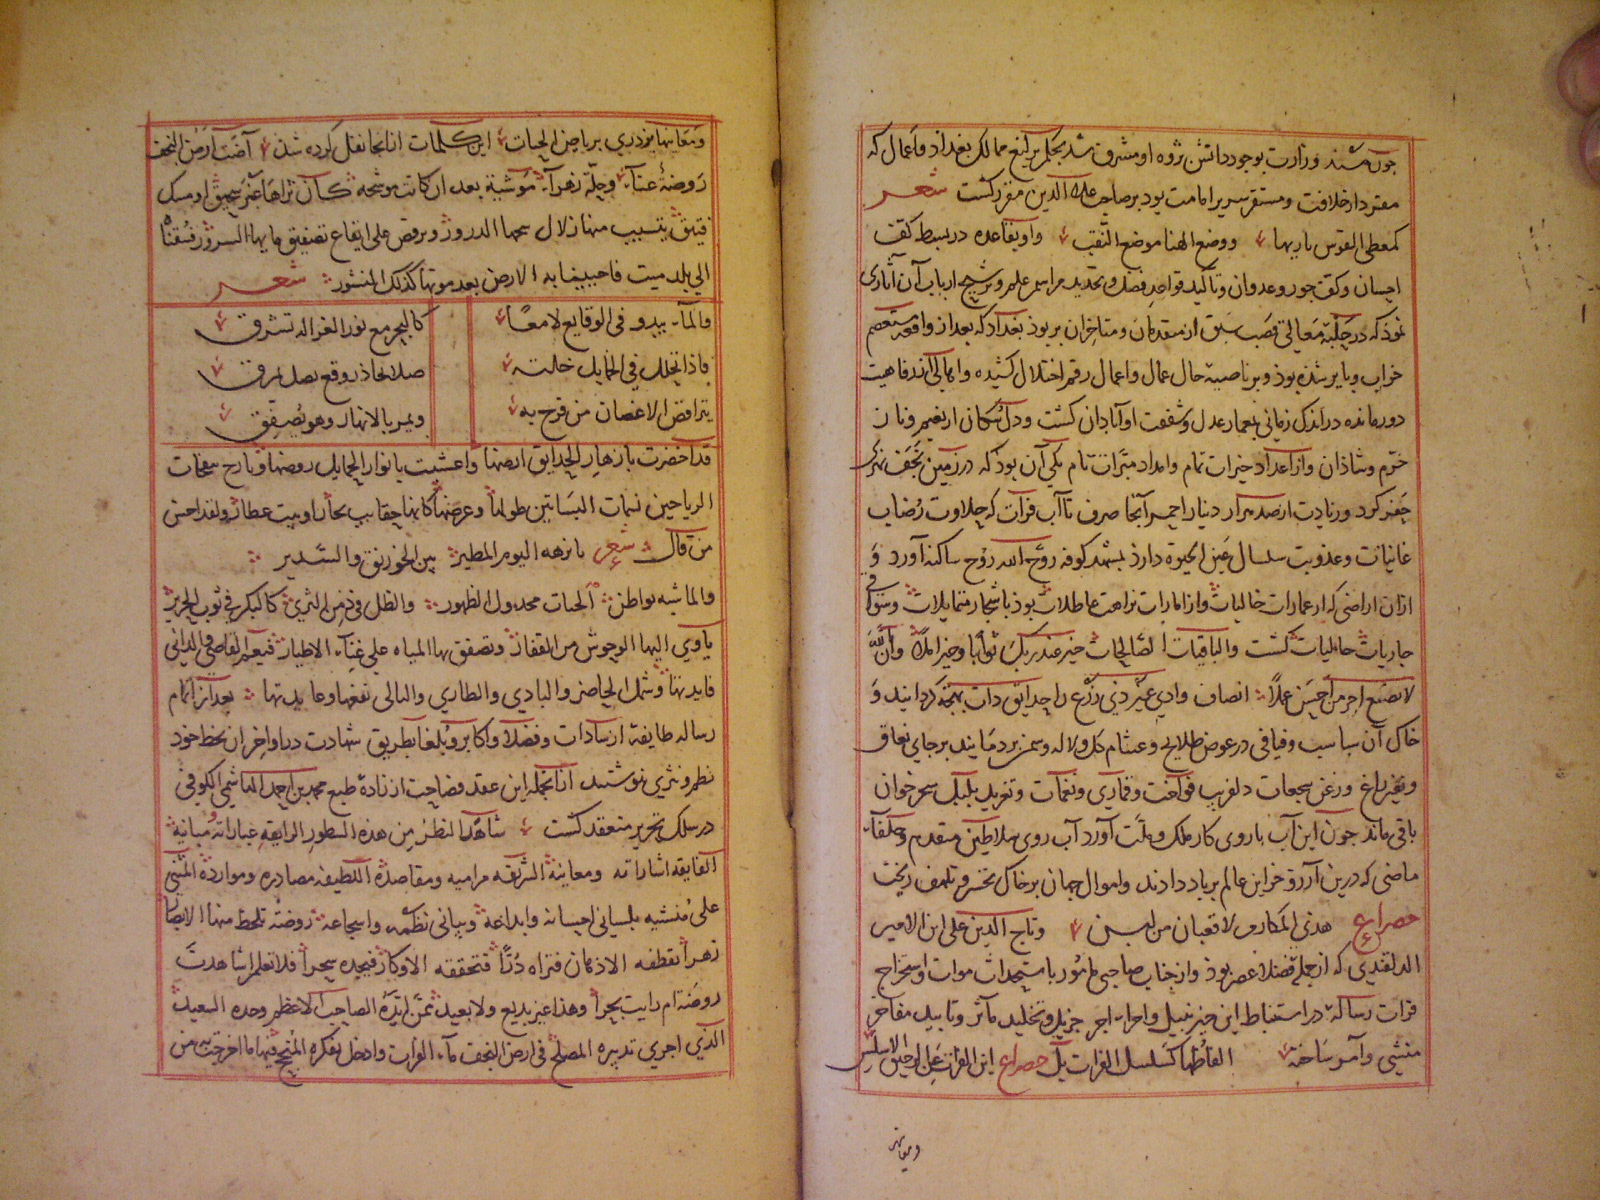 چون مسند وزارت بوجود دانش پژوه او مشرف شد بحکم یرلیغ ممالک بغداد و اعمال که
مقر دار خلافت و مستقر سریر امامت بود بر صاحب علاء الدین مقرر گشت شعر
کمعطی القوس باریها ووضع الهنا موضع النقب و او بقاعده در بسط کف
احسان و کف جور و عدوان و تأکید قواعد فضل و تجدید مراسم علم و ترشیح ارباب آن آثاری
نمود که در حلبه معالی قصب سبق از متقدمان و متاخران بربود بغداد که بعد از واقعه مستعصم
خراب و بایر شده بود و بر ناصیه حال عمال و اعمال رقم اختلال کشیده و اهالی آن از رفاهیت
دور مانده در اندک زمانی بمعمار عدل و شفقت او آبادان گشت و دل سکان از نعیم و ناز
خرم و شاذان و از اعداد خیرات تمام و امداد مبرات تام یکی آن بود که در زمین نجف نهری
حفر کرد و زیادت از صد هزار دینار احمر آنجا صرف تا آب فرات که حلاوت رضاب
غانیات و عذوبت سلسال عین الحیوة دارد بمشهد کوفه روح الله روح ساکنه آورد و
ازان اراضی که از عمارات خالیات و از امارات نزاهت عاطلات بود باشجار متمایلات و سواقی
جاریات حالیات گشت والباقیات الصالحات خیر عند ربک ثوابا وخیر املا وان الله
لا یضیع اجر من احسن عملا انصاف وادی غیر ذی زرع را حدایق ذات بهجة گردانید و
خاک آن سباسب و فیافی در عوض طلایح و عشام گل و لاله و سمن بردمانید بر جای نعاق
و نغیر زاغ و زغن سجعات دلفریب فواخت و قماری و نغمات و تغرید بلبل سحر خوان
باقی ماند چون این آب با روی کار ملک و ملت آورد آب روی سلاطین متقدم و خلفاء
ماضی که درین آرزو خزاین عالم بر باد دادند و اموال جهان بر خاک تحسر و تلهف ریخت
مصراع هذی المکارم لا قعبان من لبن و تاج الدین علی ابن الامیر
الدلقندی که از جمله فضلاء عصر بود و از جناب صاحبی مامور باستحداث موات و استخراج
فرات رساله در استنباط این خیر نبیل و احراء اجر جزیل و تخلید مآثر و تابید مفاخر
منشی و آمر ساخته الفاظها کسلسل الفرات بل مصراع این الفرات من الرحیق السلسل
ومعانیها
ومعانیها یزدری بریاض الجنات این کلمات از انجا نقل کرده شد آضت ارض النجف
روضة غناء وحلة زهراء موشیة بعد ان کانت موشحة کان ثراها عنبر سحیق او مسک
فتیق یتسبسب منها زلال سحها الدروز وترقص علی ایقاع تصفیق مایها السرور فسقناه
الی بلد میت فاحیینا به الارض بعد موتها کذلک النشور شعر
والماء یبدو فی الوقایع لامعا کالبحر مع نور الغزالة تشرق
فاذا تخلل فی الخمایل خلته صلا یحاذر وقع نصل یمرق
یتراقص الاغصان من فرح به ویمر بالانهار وهو یصفق
قد اخضرت بازهار الحدایق ارضها واعشبت بانوار الخمایل روضها وبارح نفحات
الریاحین نسمات البساتین طولها وعرضها کانها حقایب تجار او بیت عطار ولقد احسن
من قال شعر یا نزهة الیوم المطیر بین الخورنق والسدیر
والما شبه بواطن الحیات محدول الظهور والطل فی ذمن الثری کالبکر فی ثوب الحریر
یاوی الیها الوحوش من القفار وتصفق بها المیاه علی غناء الاطیار فیعم القاصی والدانی
فایدتها وشمل الحاضر والبادی والطاری والتالی نفعها وعایدتها بعد از اتمام
رساله طایفه از سادات و فضلا و اکابر و بلغا بطریق شهادت در اواخر ان بخط خود
نظم و نثری نوشتند از انجمله این عقد فصاحت از زاده طبع محمد بن احمد الهاشمی الکوفی
در سلک تحریر منعقد گشت شاهد الناظر من هذه السطور الرایقه عباراته ومبانیه
الفایقة اشاراته ومعانیه الشریفه مرامیه ومقاصده اللطیفه مصادره وموارده المثنی
علی منشیه بلسانی احسانه وابداعه وبیانی نظمه واسجاعه روضة تلحظ منها الابصار
زهرا تقطفه الاذهان فتراه درا فتحققه الافکار فیجده سحرا فلا تعلم اشاهدت
روضة ام رایت بحرا وهذا غیر بدیع ولا بعید ممن ایده الصاحب الاعظم وجده السعید
الذی اجری تدبیره المصلح فی ارض النجف ماء الفرات وادخل بفکره المنجح فیها ما اخرجت به من